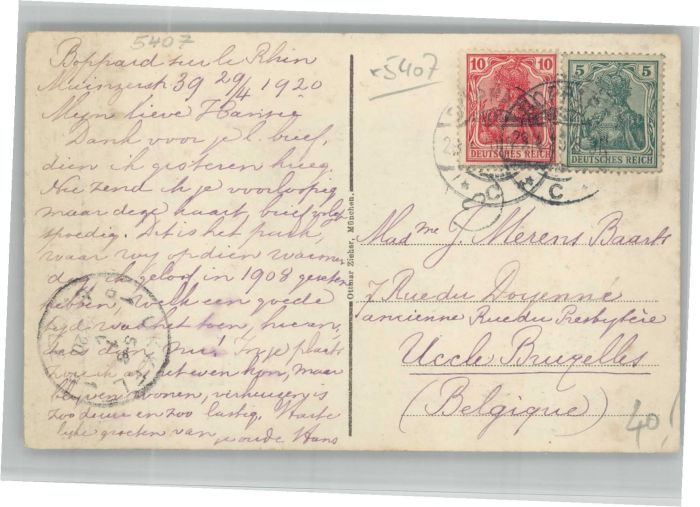 5407
Boppard sur le Rhin
Muinzerstr 39 29/4 1920
Mijn lieve Hansje
Dank voor je l. brief,
dien ik gisteren kreeg.
Nu zend ik je voorloopig
maar deze kaart, brief volgt
spoedig. Dit is het park,
waar wy op dien warmen
dag ik geloof in 1908 gezeten
hebben, welk een goede
tyd was het toen, hier en,
thans door nu! In je plaats
zou ik
blyven wonen, verhuizen is
zoo duur en zoo lastig. Harte
lyke groeten van
je oude Hans
Ottmar Zieher, München.
x5407
10 10
DEUTSCHES REICH
5 5
DEUTSCHES REICH
C
C
Mad me J. Merens Baarts
7 Rue du Doyenné
ancienne Rue du Presbytère
Uccle Bruxelles
(Belgique)
40,-